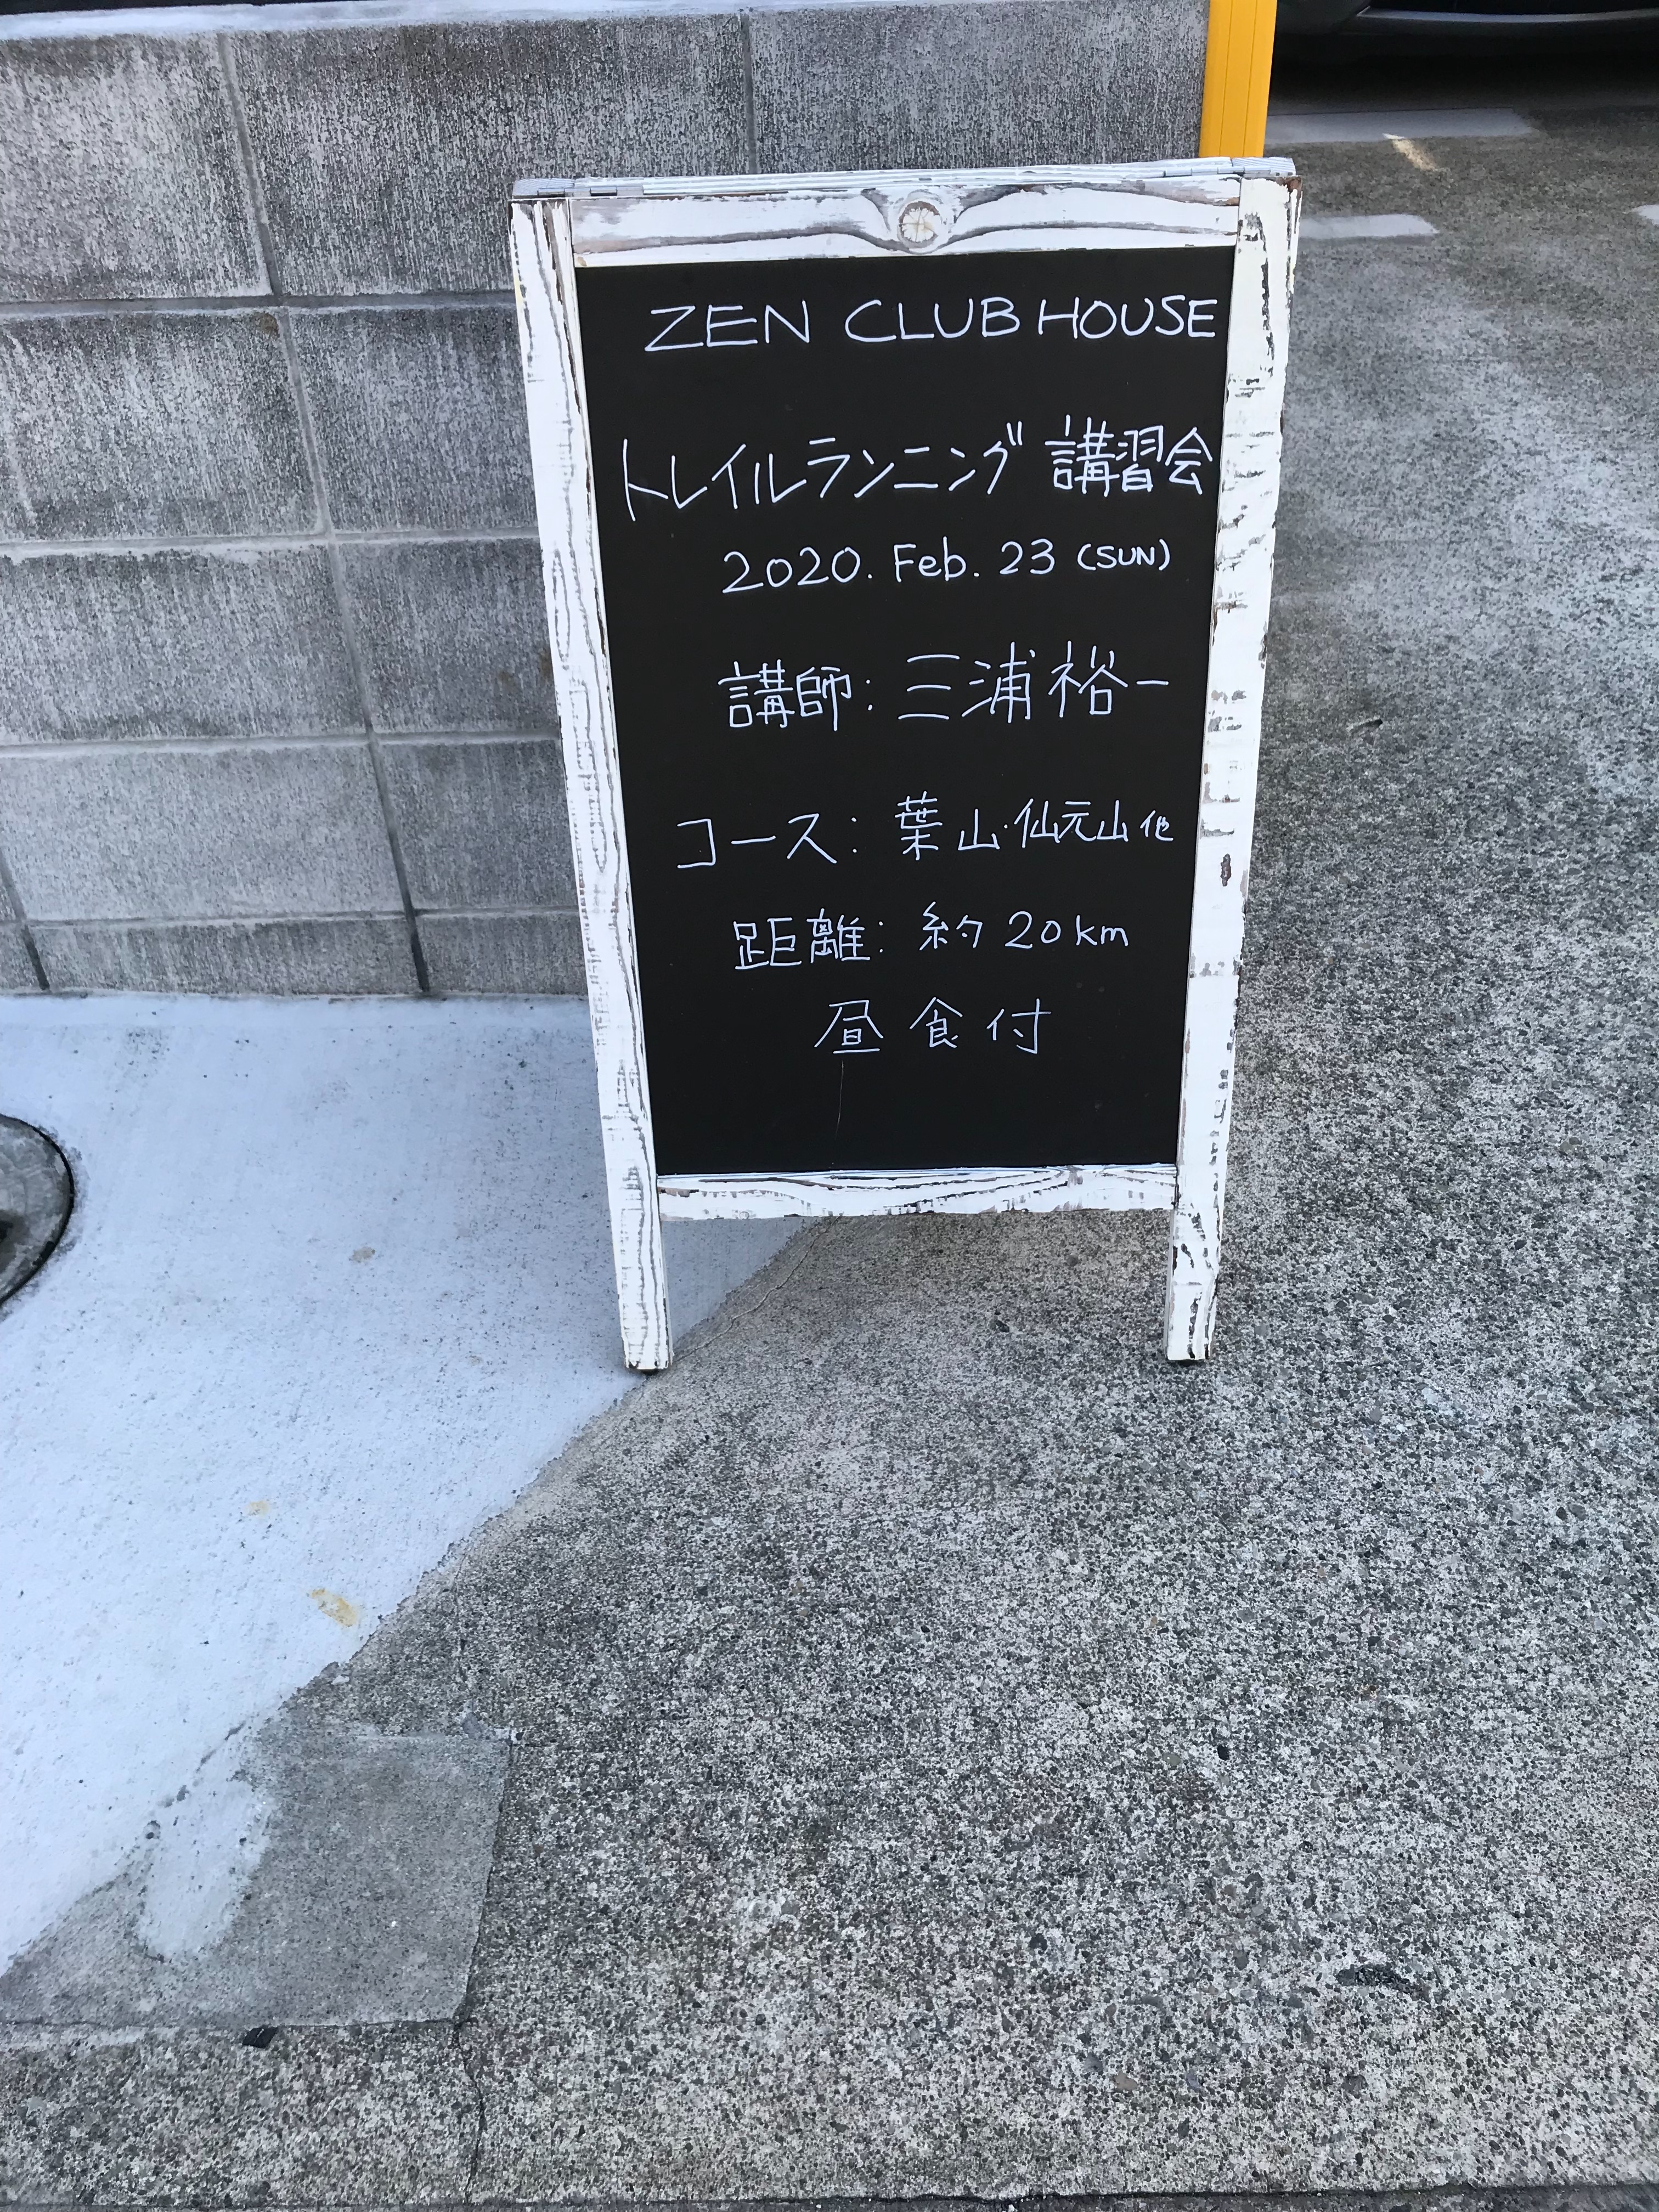 ZEN CLUB HOUSE
トレイルランニング 講習会
2020. Feb. 23 (SUN)
講師: 三浦裕一
コース: 葉山・仙元山他
距離: 約 20km
昼食付